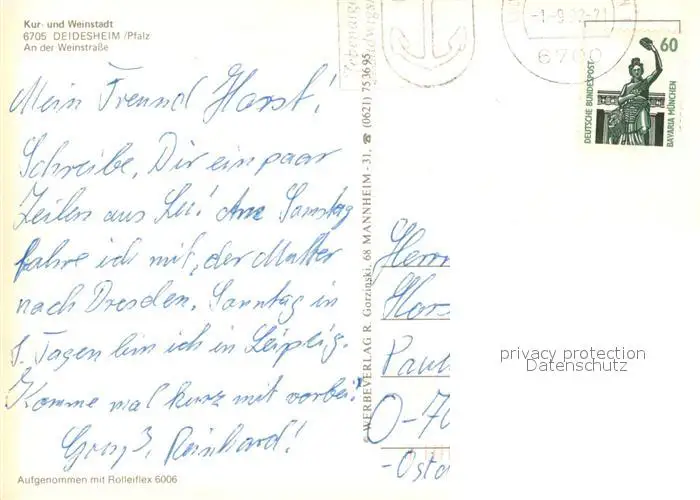 Kur- und Weinstadt
6705 DEIDESHEIM/Pfalz
An der Weinstraße
Mein Freund Horst!
Schreibe, Dir ein paar
Zeilen aus Lu! Am Samstag
fahre ich mit, der Mutter
nach Dresden. Sonntag in
8 Tagen bin ich in Leipzig.
Komme mal kurz mit vorbei!
Gruß, Reinhard!
Aufgenommen mit Rolleiflex 6006
© WERBEVERLAG R. Gorzinski, 68 MANNHEIM-31, ☎ (0621) 753695
6700
60
DEUTSCHE BUNDESPOST
BAVARIA MÜNCHEN
Herrn
Hors
Paul
O-70
-Ostd
privacy protection
Datenschutz